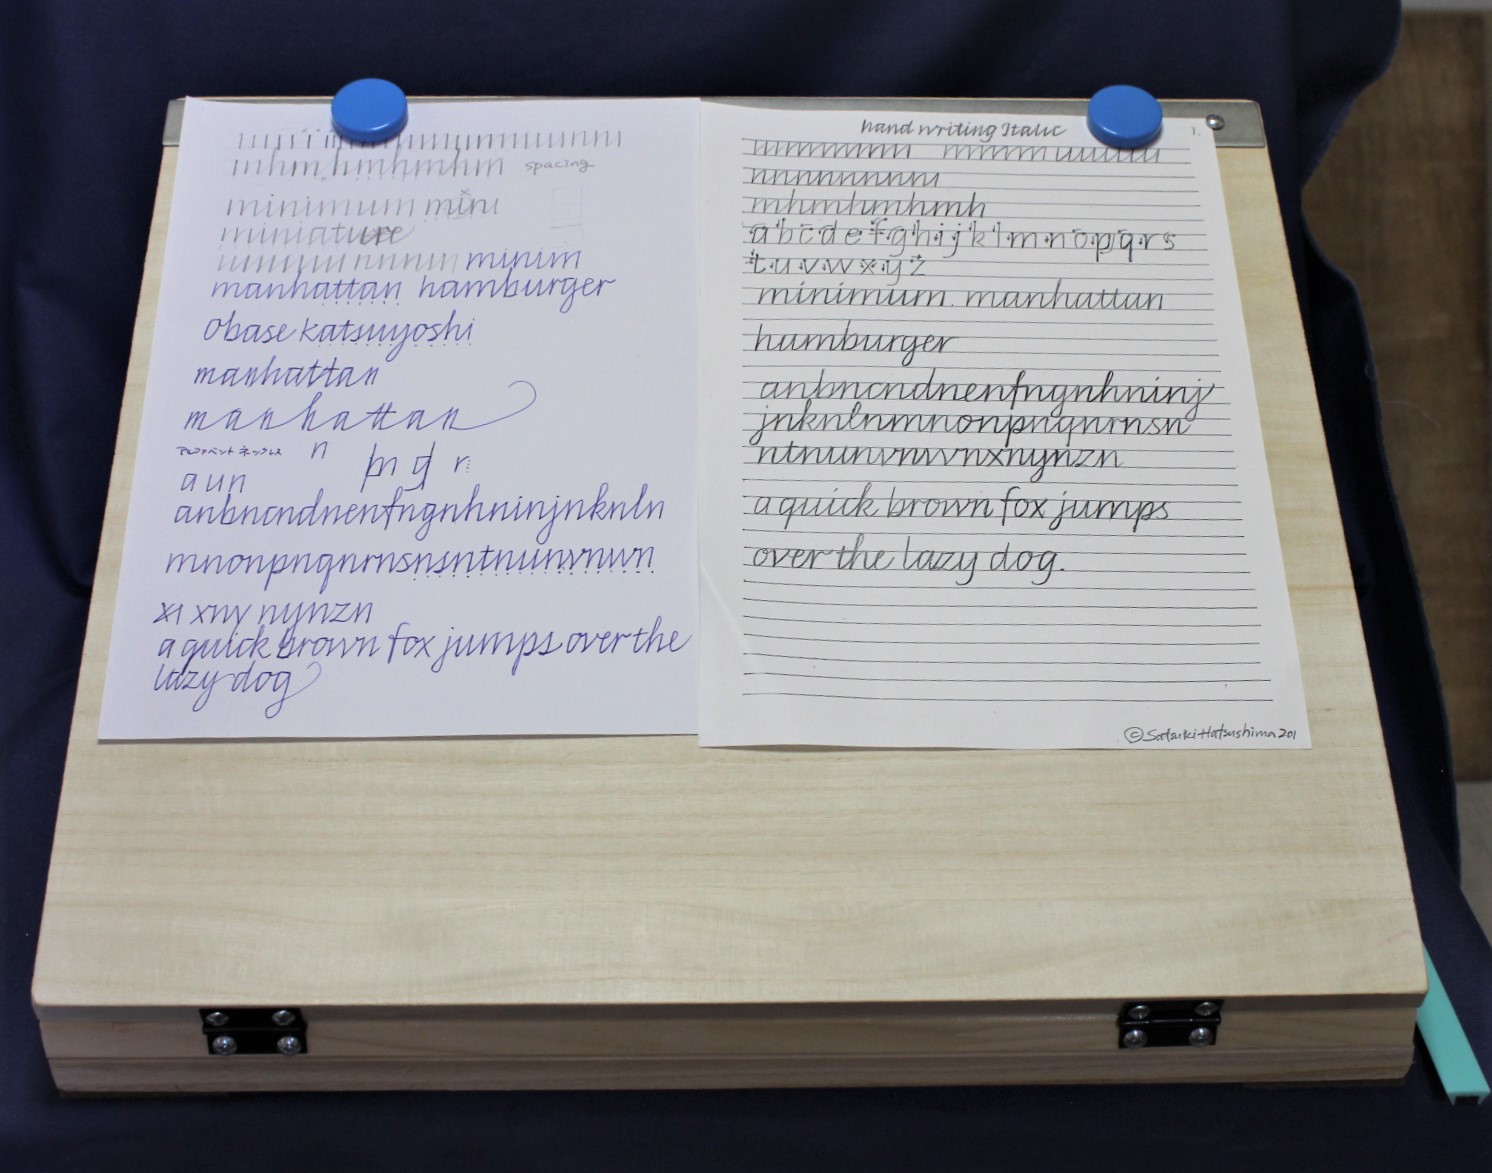 mhmhmhmhmhm spacing
minimum mini
miniature
minim
manhattan hamburger
Obase katsuyoshi
manhattan
manhattan
アルファベット ネックレス n
pn g r
a u n
anbncndnenfngnhninjnknln
mnonpnqnrnsnsntnunvnwn
x1 xny nynzn
a quick brown fox jumps over the
lazy dog
hand writing Italic 1.
nnnnnnnnnn
mhmhmhmhmh
a b c d e f g h i j k l m n o p q r s
t u v w x y z
minimum. manhattan
hamburger
anbncndnenfngnhninj
jnknlnmnonpnqnrnsn
ntnunvnwnxnynzn
a quick brown fox jumps
over the lazy dog.
©Satsuki Hatsushima 201